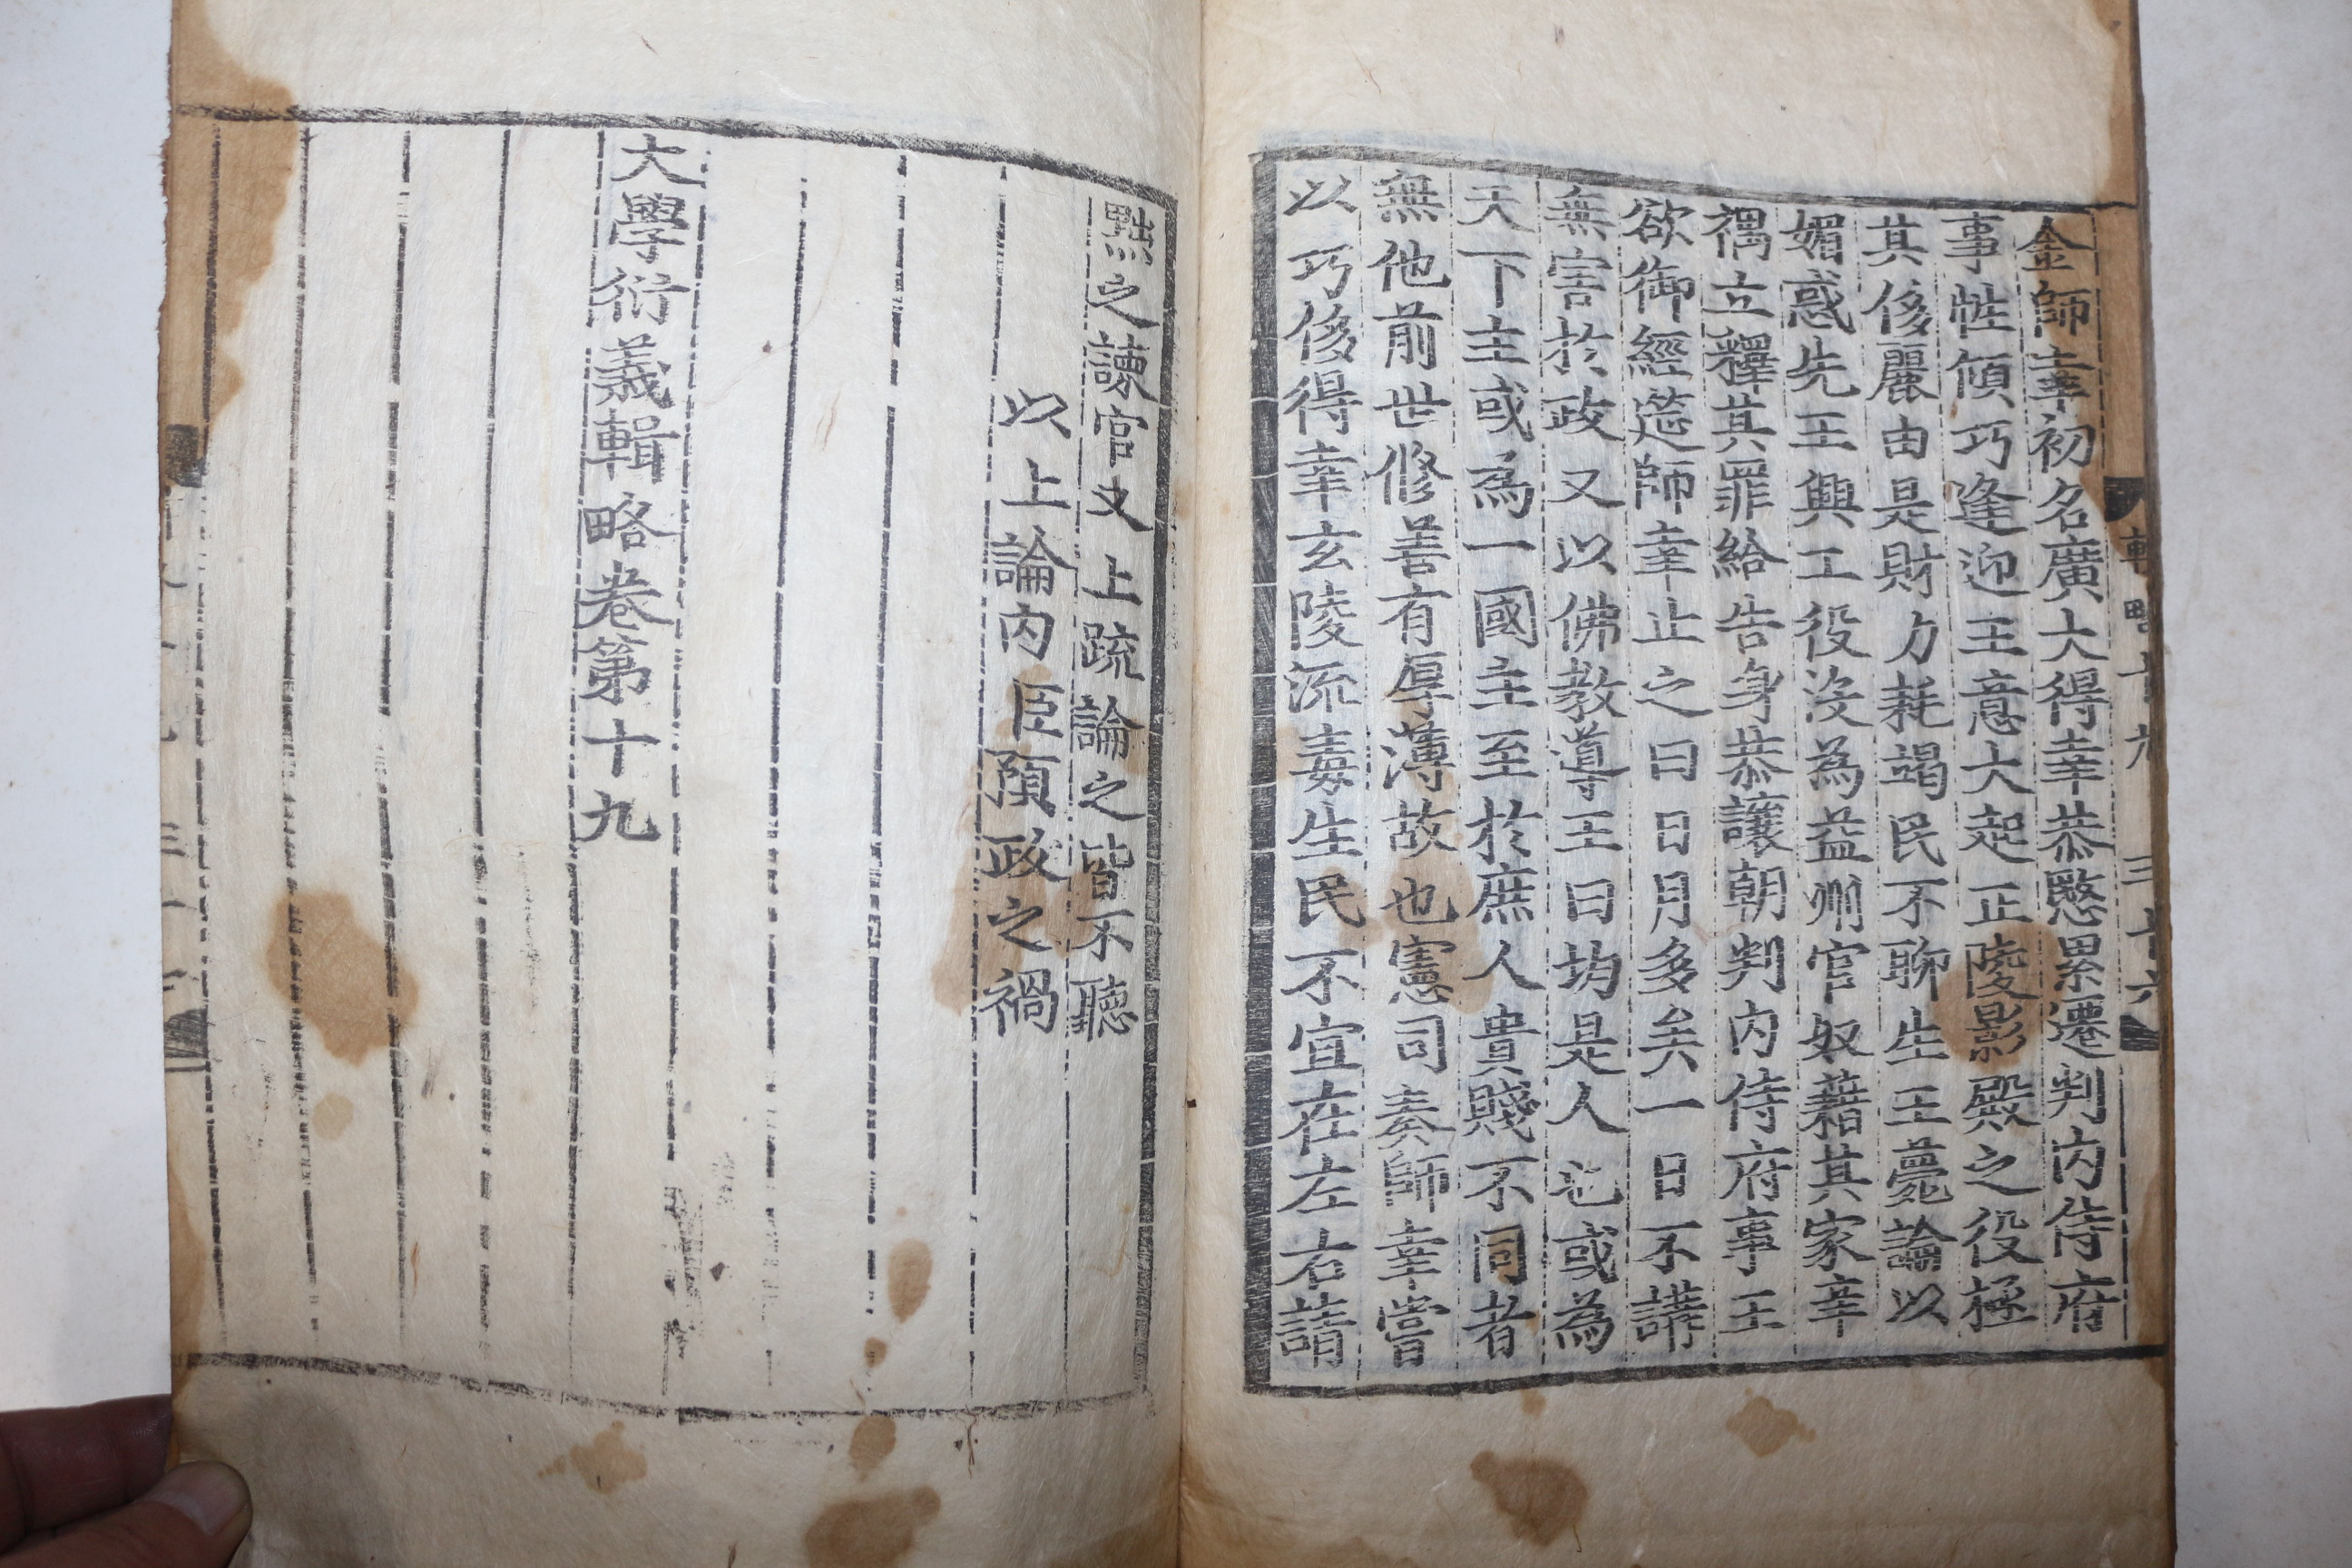 金師幸初名廣大得幸恭愍累遷判內侍府
事性傾巧逢迎王意大起正陵影殿之役極
其侈麗由是財力耗竭民不聊生王薨論以
媚惑先王興工役沒爲益州官奴藉其家辛
禑立釋其罪給告身恭讓朝判內侍府事王
欲御經筵師幸止之曰日月多矣一日不講
無害於政又以佛教導王曰均是人也或爲
天下主或爲一國主至於庶人貴賤不同者
無他前世修善有厚薄故也憲司奏師幸嘗
以巧侈得幸玄陵流毒生民不宜在左右請
輯略十九 三十六
黜之諫官又上疏論之皆不聽
以上論內臣預政之禍
大學衍義輯略卷第十九